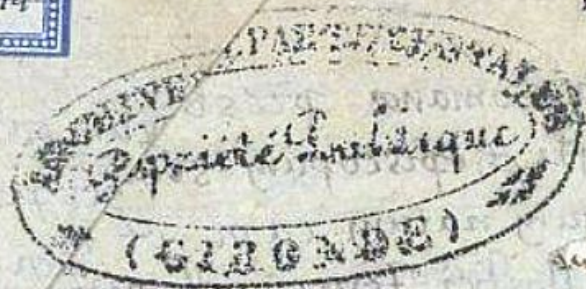 ARCHIVES DÉPARTEMENTALES
Propriété Publique
(GIRONDE)